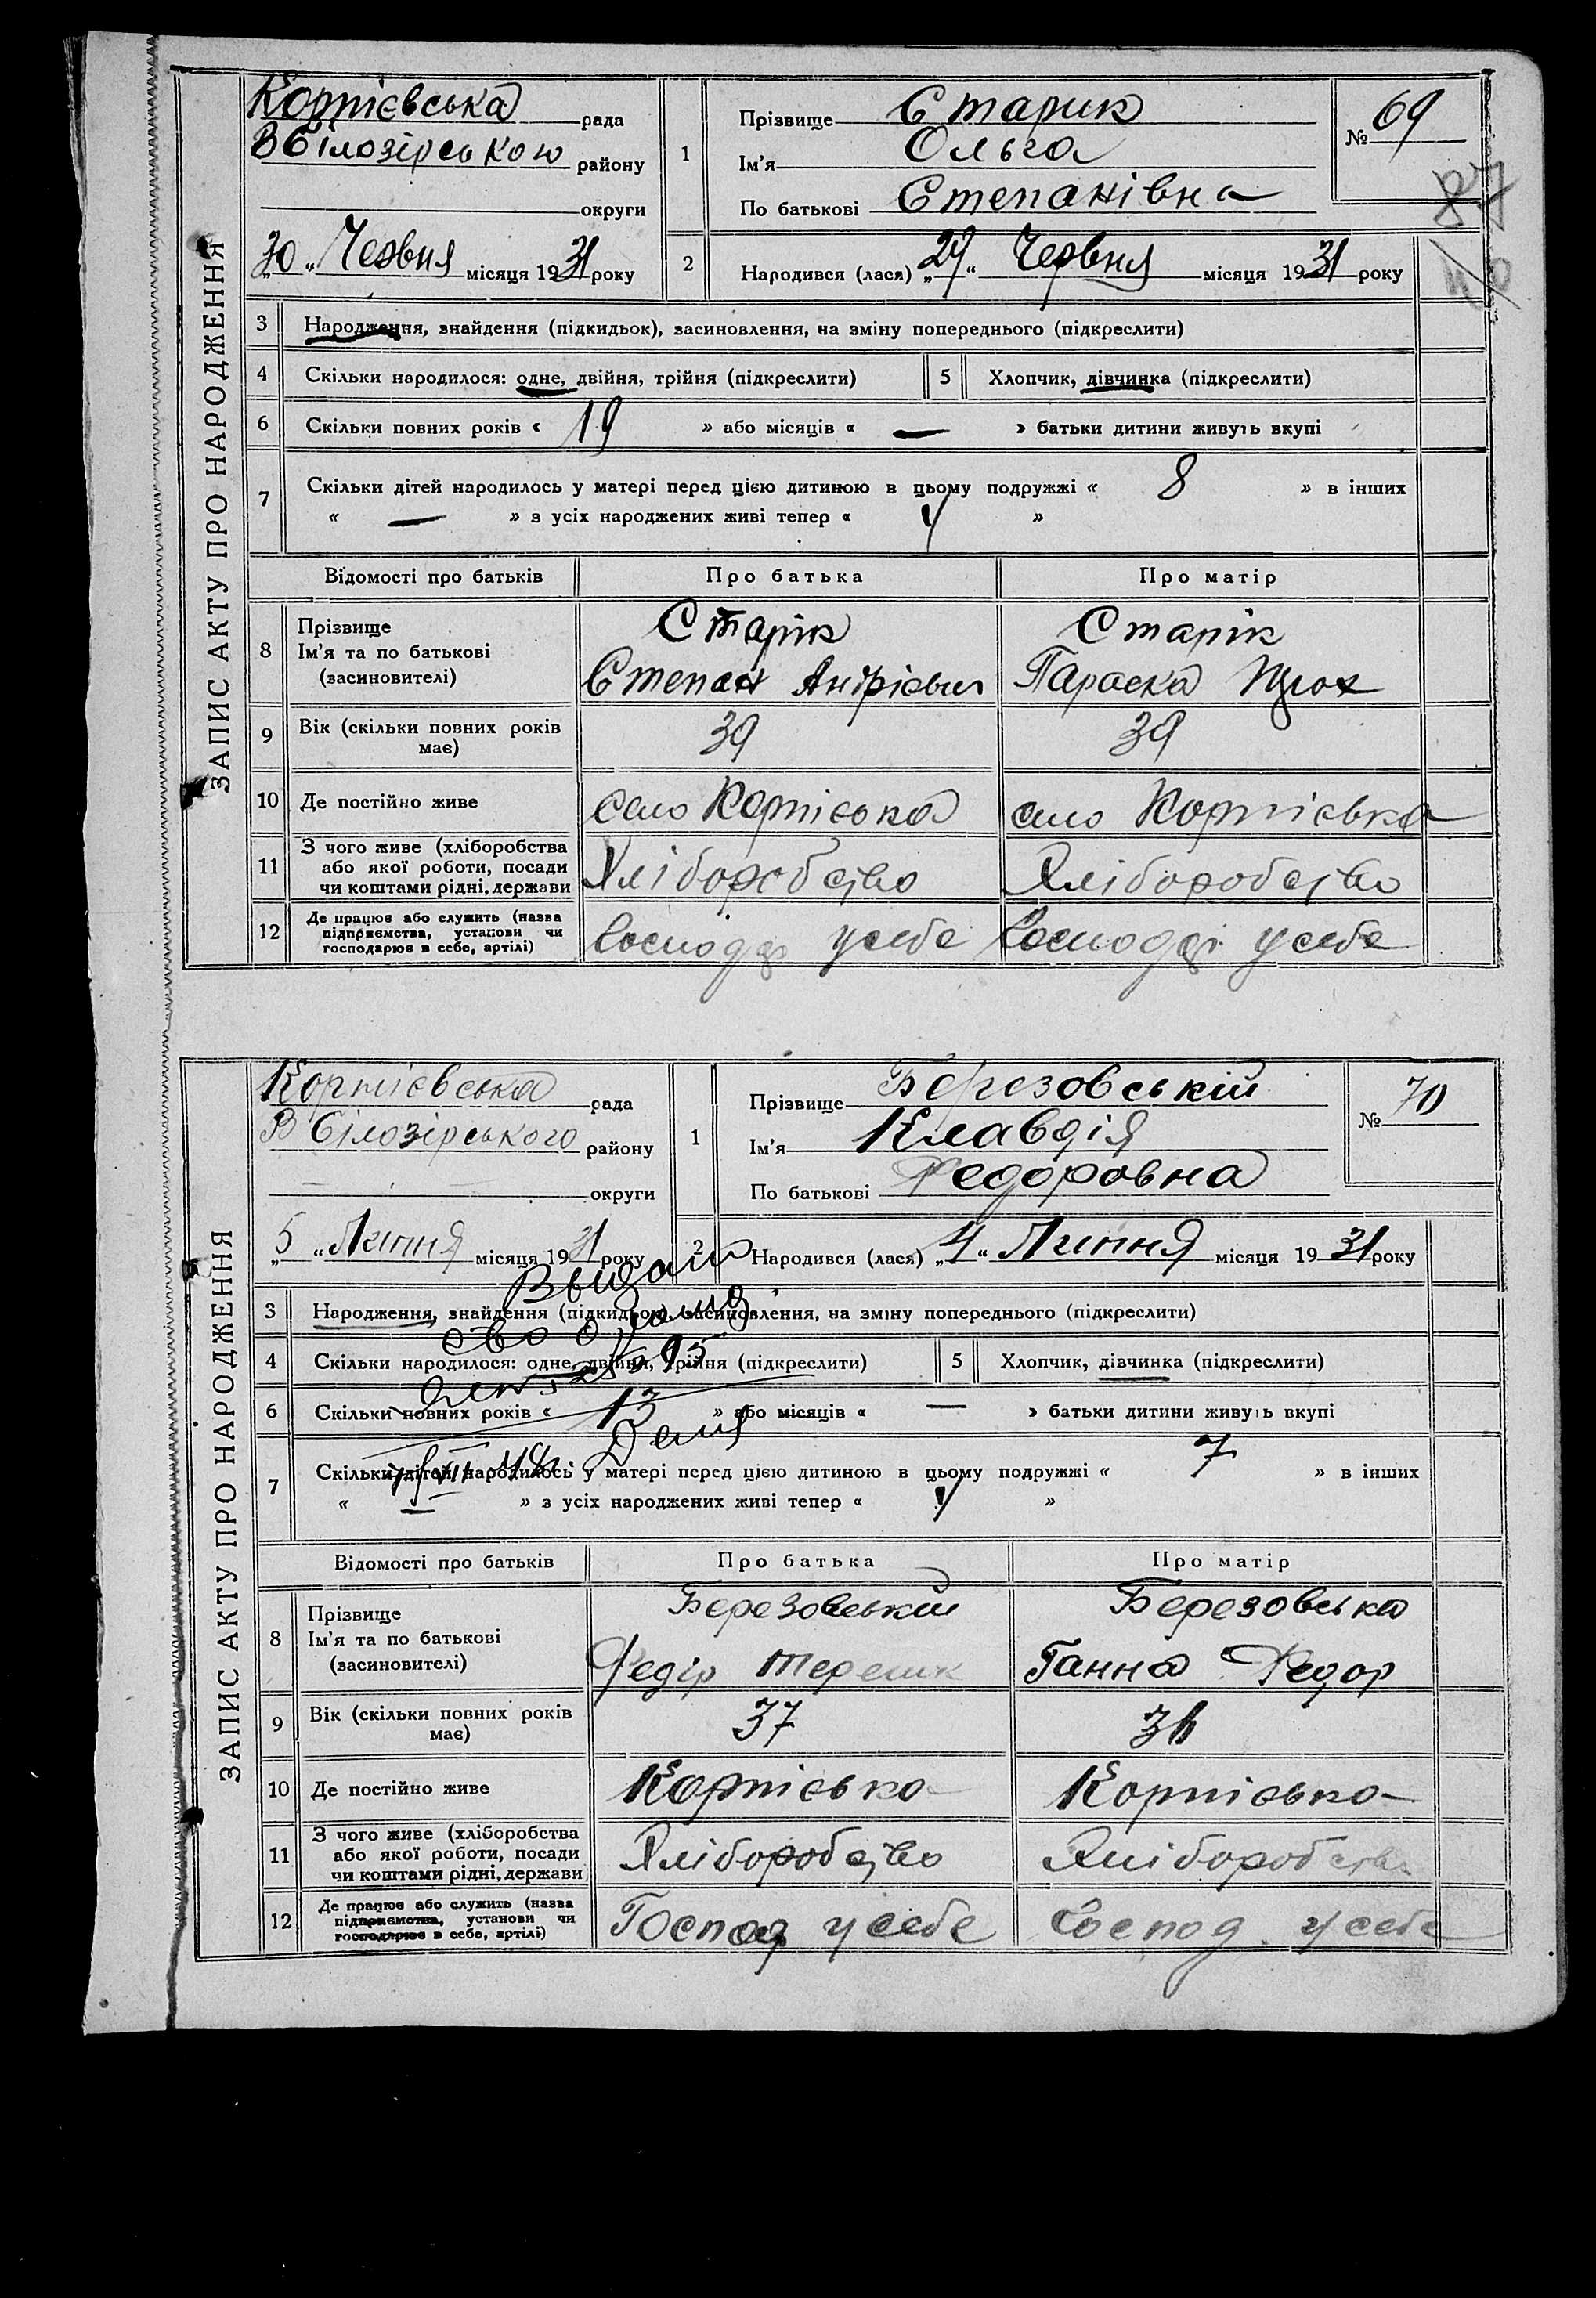 ЗАПИС АКТУ ПРО НАРОДЖЕННЯ
Корпієвська рада
В Білозірською району
округи
„30“ Червня місяця 1931 року
1
Прізвище Старик
Ім'я Ольга
По батькові Степанівна
№ 69
87
2
Народився (лася) „29“ Червня місяця 1931 року
3 Народження, знайдення (підкидьок), засиновлення, на зміну попереднього (підкреслити)
4 Скільки народилося: одне, двійня, трійня (підкреслити)
5 Хлопчик, дівчинка (підкреслити)
6 Скільки повних років « 19 » або місяців « — » батьки дитини живуть вкупі
7 Скільки дітей народилось у матері перед цією дитиною в цьому подружжі « 8 » в інших
« — » з усіх народжених живі тепер « »
Відомості про батьків Про батька Про матір
8 Прізвище
Ім'я та по батькові
(засиновителі)
Старік
Степан Андрієвич
Старік
Параска
9 Вік (скільки повних років має) 39 39
10 Де постійно живе село Корпієвка село Корпієвка
11 З чого живе (хліборобства
або якої роботи, посади
чи коштами рідні, держави
Хліборобство Хліборобство
12 Де працює або служить (назва
підприємства, установи чи
господарює в себе, артілі)
у себе у себе
ЗАПИС АКТУ ПРО НАРОДЖЕННЯ
Корпієвська рада
В Білозірського району
округи
„5“ Липня місяця 1931 року
1
Прізвище Березовській
Ім'я Клавдія
По батькові Федоровна
№ 70
2 Народився (лася) „4“ Липня місяця 1931 року
3 Народження, знайдення (підкидьок), засиновлення, на зміну попереднього (підкреслити)
4 Скільки народилося: одне, двійня, трійня (підкреслити)
5 Хлопчик, дівчинка (підкреслити)
6 Скільки повних років « 13 » або місяців « — » батьки дитини живуть вкупі
7 Скільки дітей народилось у матері перед цією дитиною в цьому подружжі « 7 » в інших
« — » з усіх народжених живі тепер « »
Відомості про батьків Про батька Про матір
8 Прізвище
Ім'я та по батькові
(засиновителі)
Березовській
Федір Терешк
Березовська
Ганна Федор
9 Вік (скільки повних років має) 37
10 Де постійно живе Корпієвка Корпієвка
11 З чого живе (хліборобства
або якої роботи, посади
чи коштами рідні, держави
Хліборобство Хліборобство
12 Де працює або служить (назва
підприємства, установи чи
господарює в себе, артілі)
Господ у себе Господ. у себе